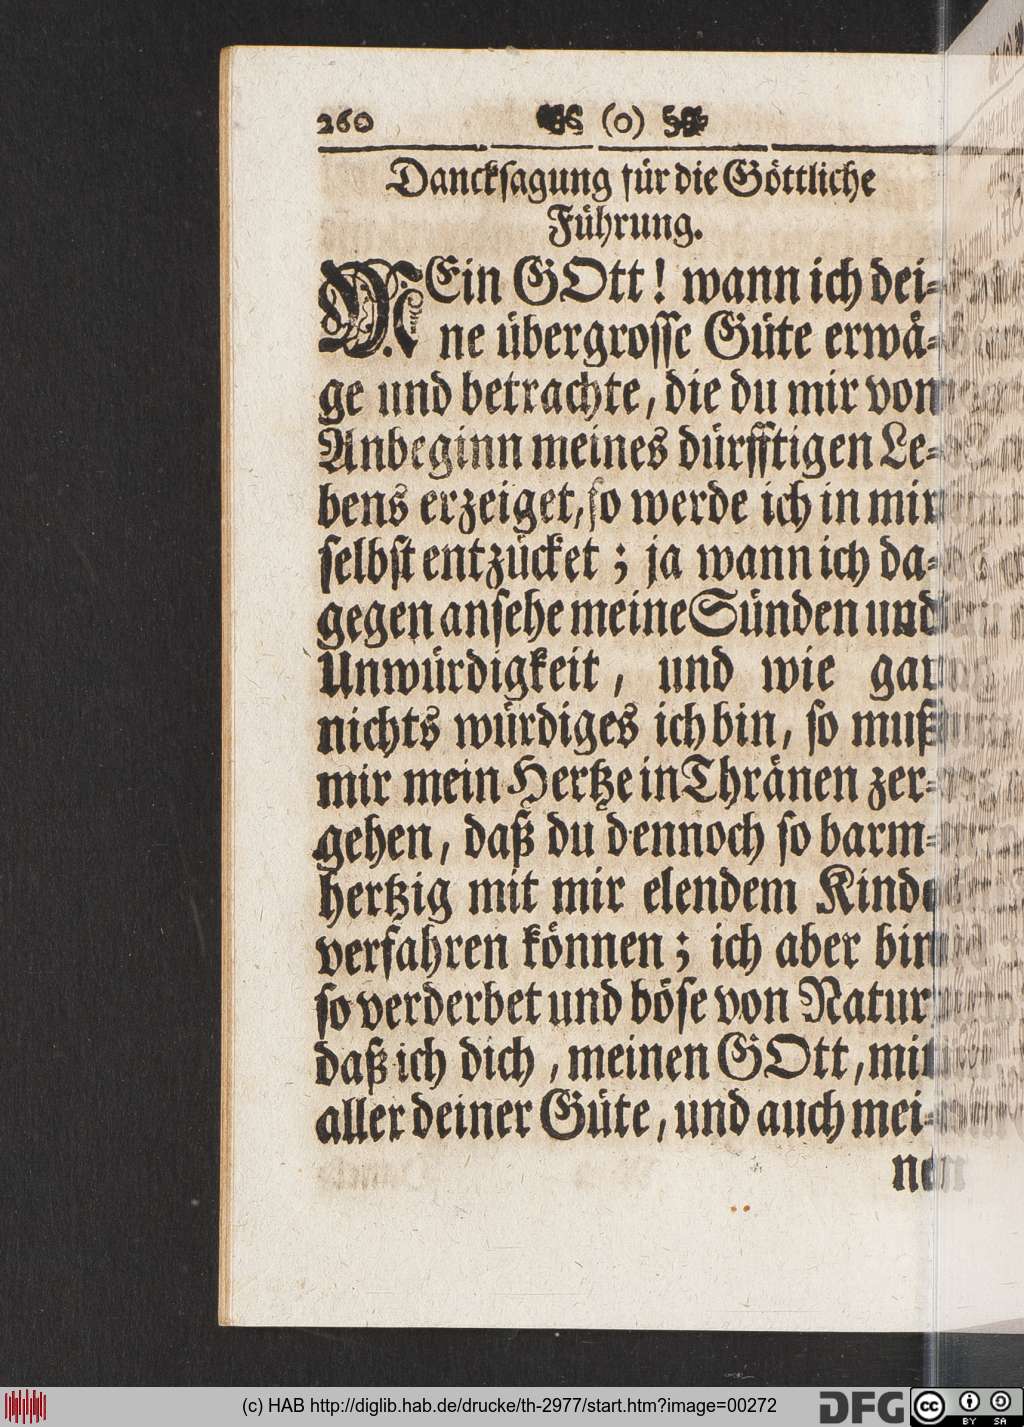 260 (o)
Dancksagung für die Göttliche
Führung.
MEin GOtt! wann ich dei-
ne übergrosse Güte erwä-
ge und betrachte, die du mir von
Anbeginn meines dürfftigen Le-
bens erzeiget, so werde ich in mir
selbst entzücket; ja wann ich da-
gegen ansehe meine Sünden und
Unwürdigkeit, und wie gar
nichts würdiges ich bin, so muß
mir mein Hertze in Thränen zer-
gehen, daß du dennoch so barm-
hertzig mit mir elendem Kinde
verfahren können; ich aber bin
so verderbet und böse von Natur
daß ich dich, meinen GOtt, mit
aller deiner Güte, und auch mei-
nen
(c) HAB http://diglib.hab.de/drucke/th-2977/start.htm?image=00272
DFG
cc BY SA